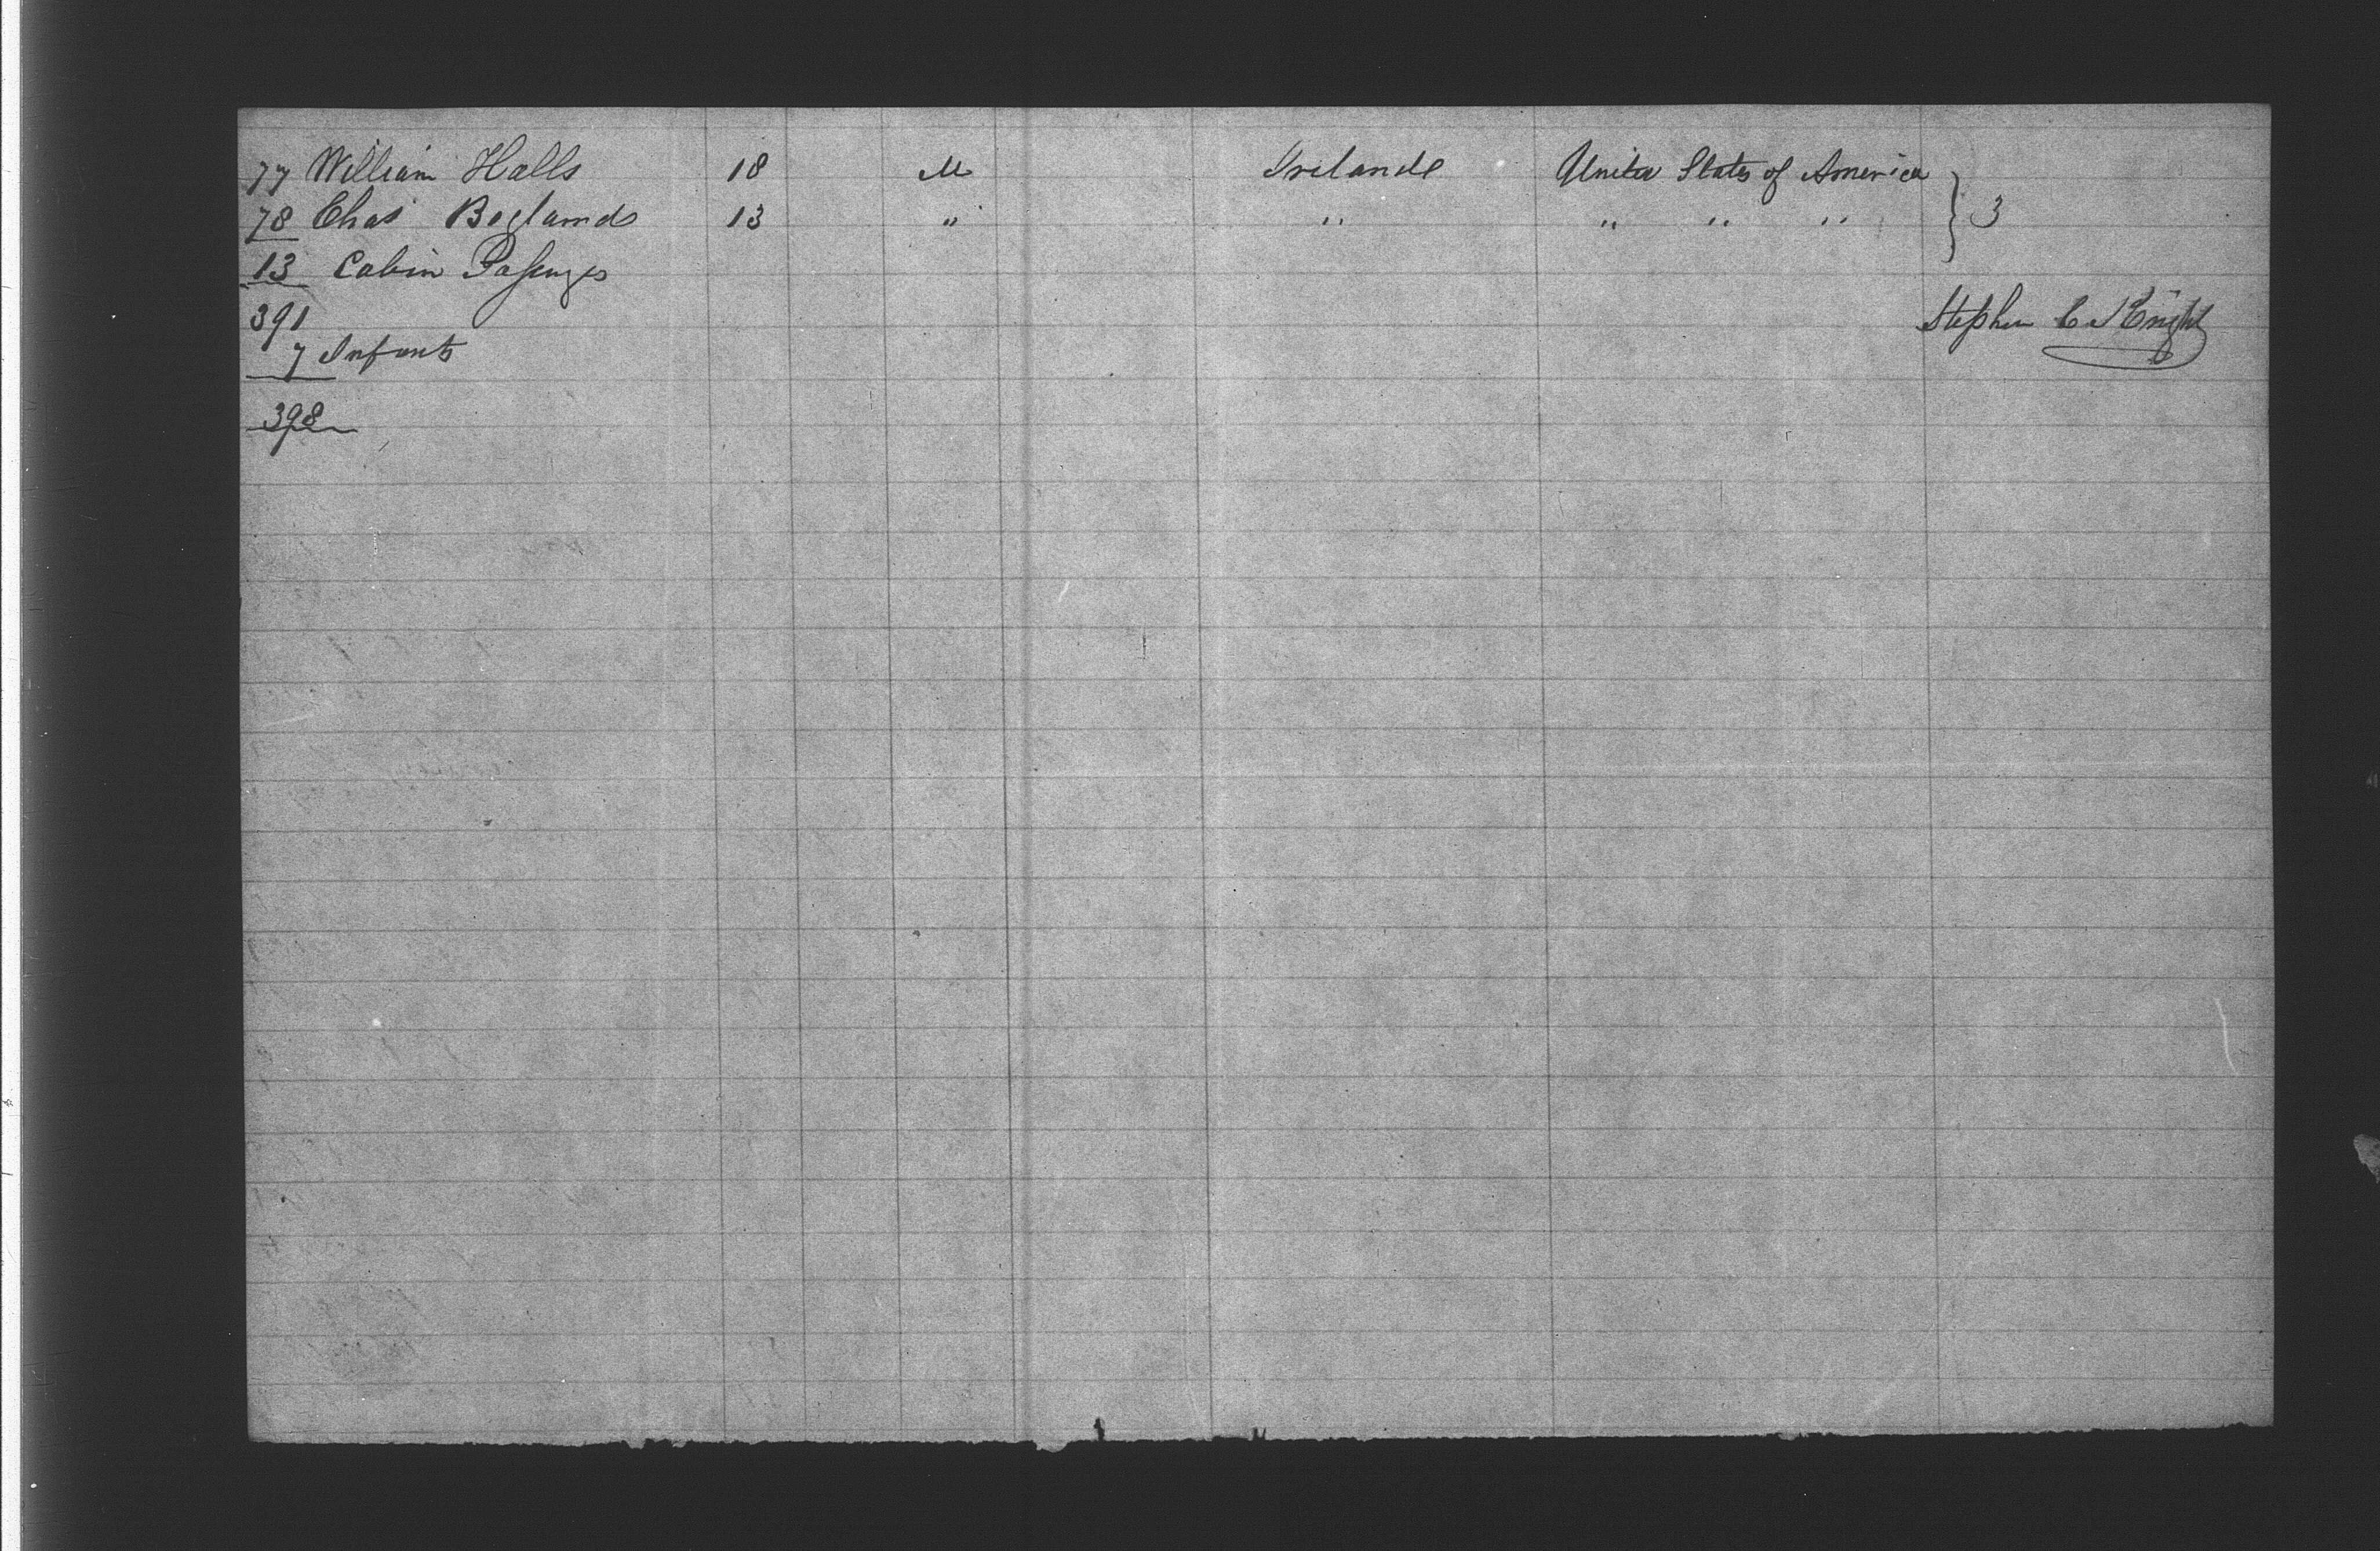 77 William Halls 18 M Irelande United States of America
78 Chas 13 " " " " " } 3
13 Cabin Passengs
391
7 Infants
Stephen C Knight
398